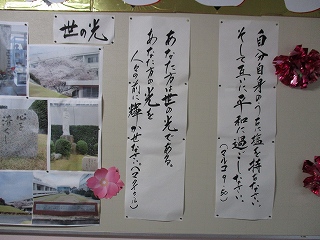 自分自身のうちに塩を持ちなさい。
そして互いに平和に過ごしなさい。
(マルコ9-50)
あなた方は世の光である。
あなた方の光を
人々の前に輝かせなさい。
世の光